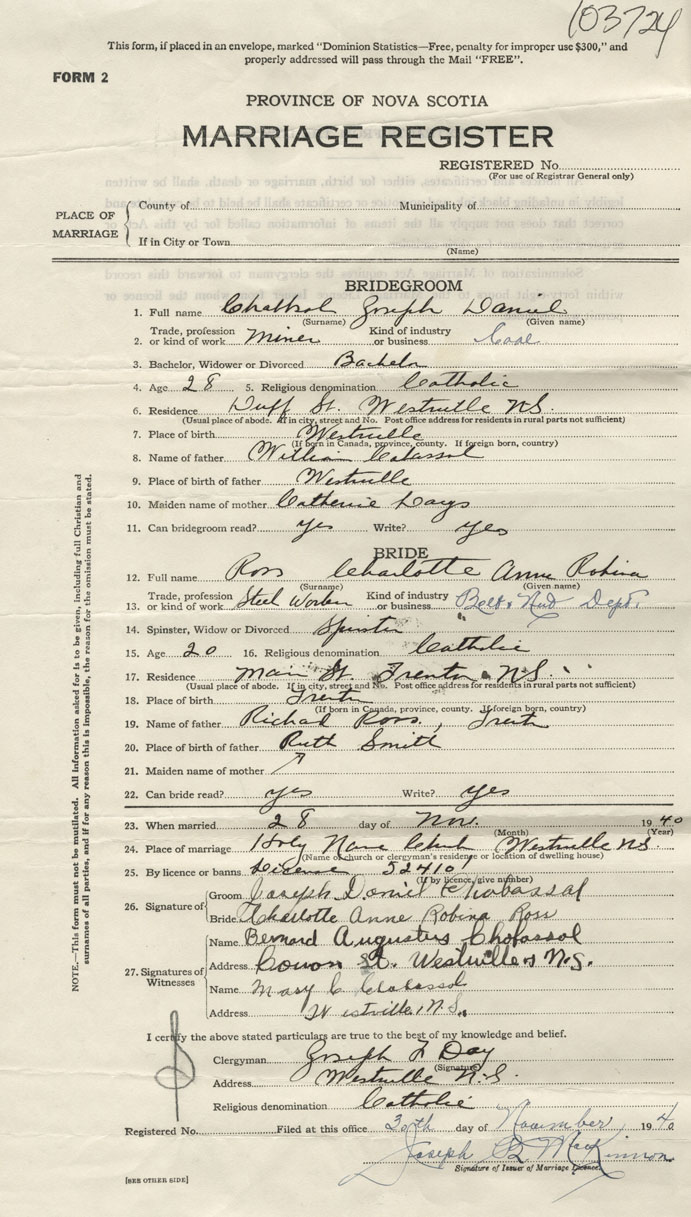 103724
This form, if placed in an envelope, marked "Dominion Statistics—Free, penalty for improper use $300," and
properly addressed will pass through the Mail "FREE".
FORM 2
PROVINCE OF NOVA SCOTIA
MARRIAGE REGISTER
REGISTERED No.
(For use of Registrar General only)
PLACE OF MARRIAGE
County of Municipality of
If in City or Town
(Name)
BRIDEGROOM
1. Full name Joseph Daniel
(Surname) (Given name)
2. Trade, profession or kind of work Miner Kind of industry or business Coal
3. Bachelor, Widower or Divorced Bachelor
4. Age 28 5. Religious denomination Catholic
6. Residence Duff St. Westville N.S.
(Usual place of abode. If in city, street and No. Post office address for residents in rural parts not sufficient)
7. Place of birth Westville
(If born in Canada, province, county. If foreign born, country)
8. Name of father William
9. Place of birth of father Westville
10. Maiden name of mother Catherine
11. Can bridegroom read? yes Write? yes
BRIDE
12. Full name Ross Charlotte Anne Robina
(Surname) (Given name)
13. Trade, profession or kind of work Steel Worker Kind of industry or business Bolt & Nut Dept.
14. Spinster, Widow or Divorced Spinster
15. Age 20 16. Religious denomination Catholic
17. Residence Main St. Trenton N.S.
(Usual place of abode. If in city, street and No. Post office address for residents in rural parts not sufficient)
18. Place of birth Trenton
(If born in Canada, province, county. If foreign born, country)
19. Name of father Richard Ross, Trenton
20. Place of birth of father Ruth Smith
21. Maiden name of mother
22. Can bride read? yes Write? yes
23. When married 28 day of Nov. 1940
(Month) (Year)
24. Place of marriage Holy Name Church Westville N.S.
(Name of church or clergyman's residence or location of dwelling house)
25. By licence or banns License 52410
(If by licence, give number)
26. Signature of Groom Joseph Daniel Chabassol
Bride Charlotte Anne Robina Ross
27. Signatures of Witnesses
Name Bernard Augustus
Address St. Westville, N.S.
Name Mary C
Address Westville, N.S.
I certify the above stated particulars are true to the best of my knowledge and belief.
Clergyman Joseph F Day
(Signature)
Address Westville N.S.
Religious denomination Catholic
Registered No. Filed at this office 30th day of November 1940
Joseph B MacKinnon
Signature of Issuer of Marriage Licence.
[SEE OTHER SIDE]
NOTE.—This form must not be mutilated. All information asked for is to be given, including full Christian and
surnames of all parties, and if for any reason this is impossible, the reason for the omission must be stated.